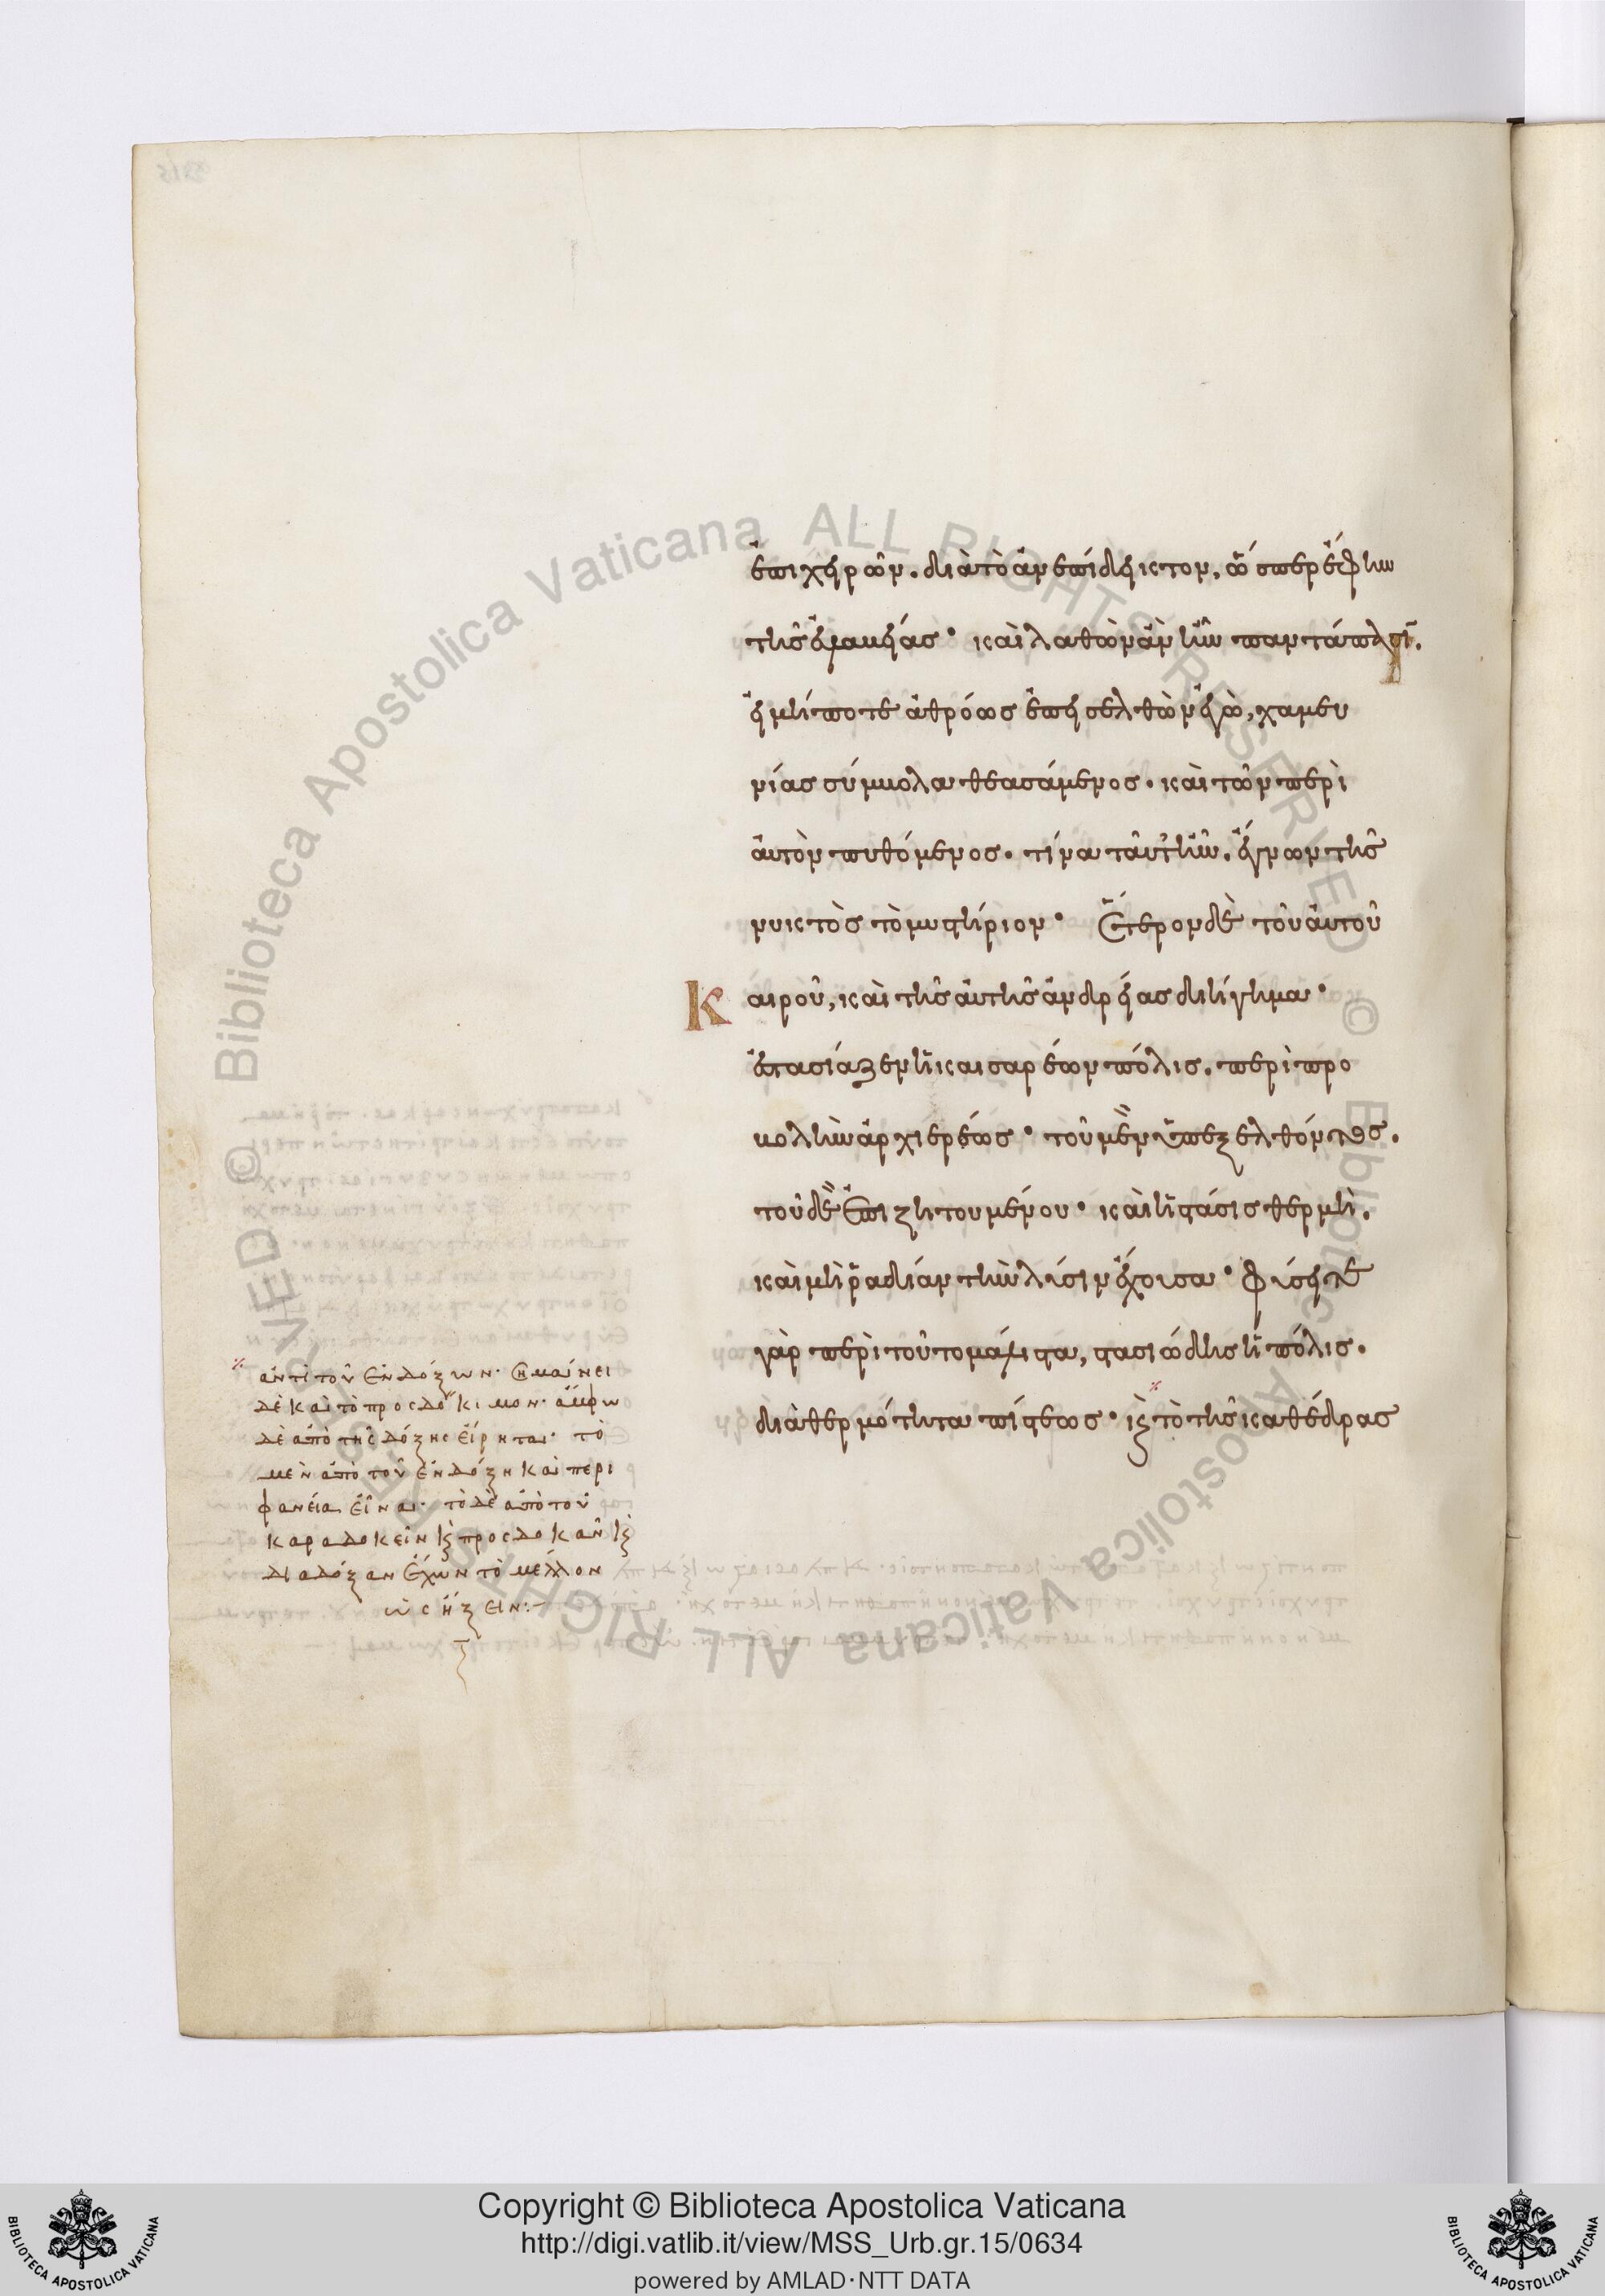 ἐπιχειρῶν. διὰ τὸ ἀνεπίδεικτον, ὥσπερ ἔφην
τῆς εὐμενείας· καὶ λαθὼν ἂν ἦν παντάπασι.
εἰ μήποτε ἀθρόως ἐπεισελθὼν ἐγὼ, χαμευ
νίας σύμβολα θεασάμενος. καὶ τῶν περὶ
αὐτὸν πυθόμενος. τίνα ταῦτ' ἦν. ἔγνων τῆς
νυκτὸς τὸ μυστήριον· Ἕτερον δὲ τοῦ αὐτοῦ
Καιροῦ, καὶ τῆς αὐτῆς ἀνδρείας διήγημα·
ἐστασίαζεν ἡ καισαρέων πόλις. περὶ προ
βολὴν ἀρχιερέως· τοῦ μὲν ὑπεξελθόντος.
τοῦ δὲ ἐπιζητουμένου· καὶ ἡ στάσις θερμὴ.
καὶ μὴ ῥαδίαν τὴν λύσιν ἔχουσα· φύσει τε
γὰρ περὶ τοῦτο μάλιστα, στασιώδης ἡ πόλις.
διὰ θερμότητα πίστεως· καὶ τὸ τῆς καθέδρας
ἀντὶ τοῦ ἐνδόξων· σημαίνει
δὲ καὶ τὸ προσδόκιμον· ἄμφω
δὲ ἀπὸ τῆς δόξης εἴρηται· τὸ
μὲν ἀπὸ τοῦ ἐν δόξῃ καὶ περι
φανείᾳ εἶναι· τὸ δὲ ἀπὸ τοῦ
καραδοκεῖν καὶ προσδοκᾶν καὶ
διὰ δόξαν ἔχων τὸ μέλλον
ὡς ἥξειν:–
Copyright © Biblioteca Apostolica Vaticana
http://digi.vatlib.it/view/MSS_Urb.gr.15/0634
powered by AMLAD·NTT DATA
BIBLIOTECA APOSTOLICA VATICANA
BIBLIOTECA APOSTOLICA VATICANA
© Biblioteca Apostolica Vaticana ALL RIGHTS RESERVED
© Biblioteca Apostolica Vaticana ALL RIGHTS RESERVED